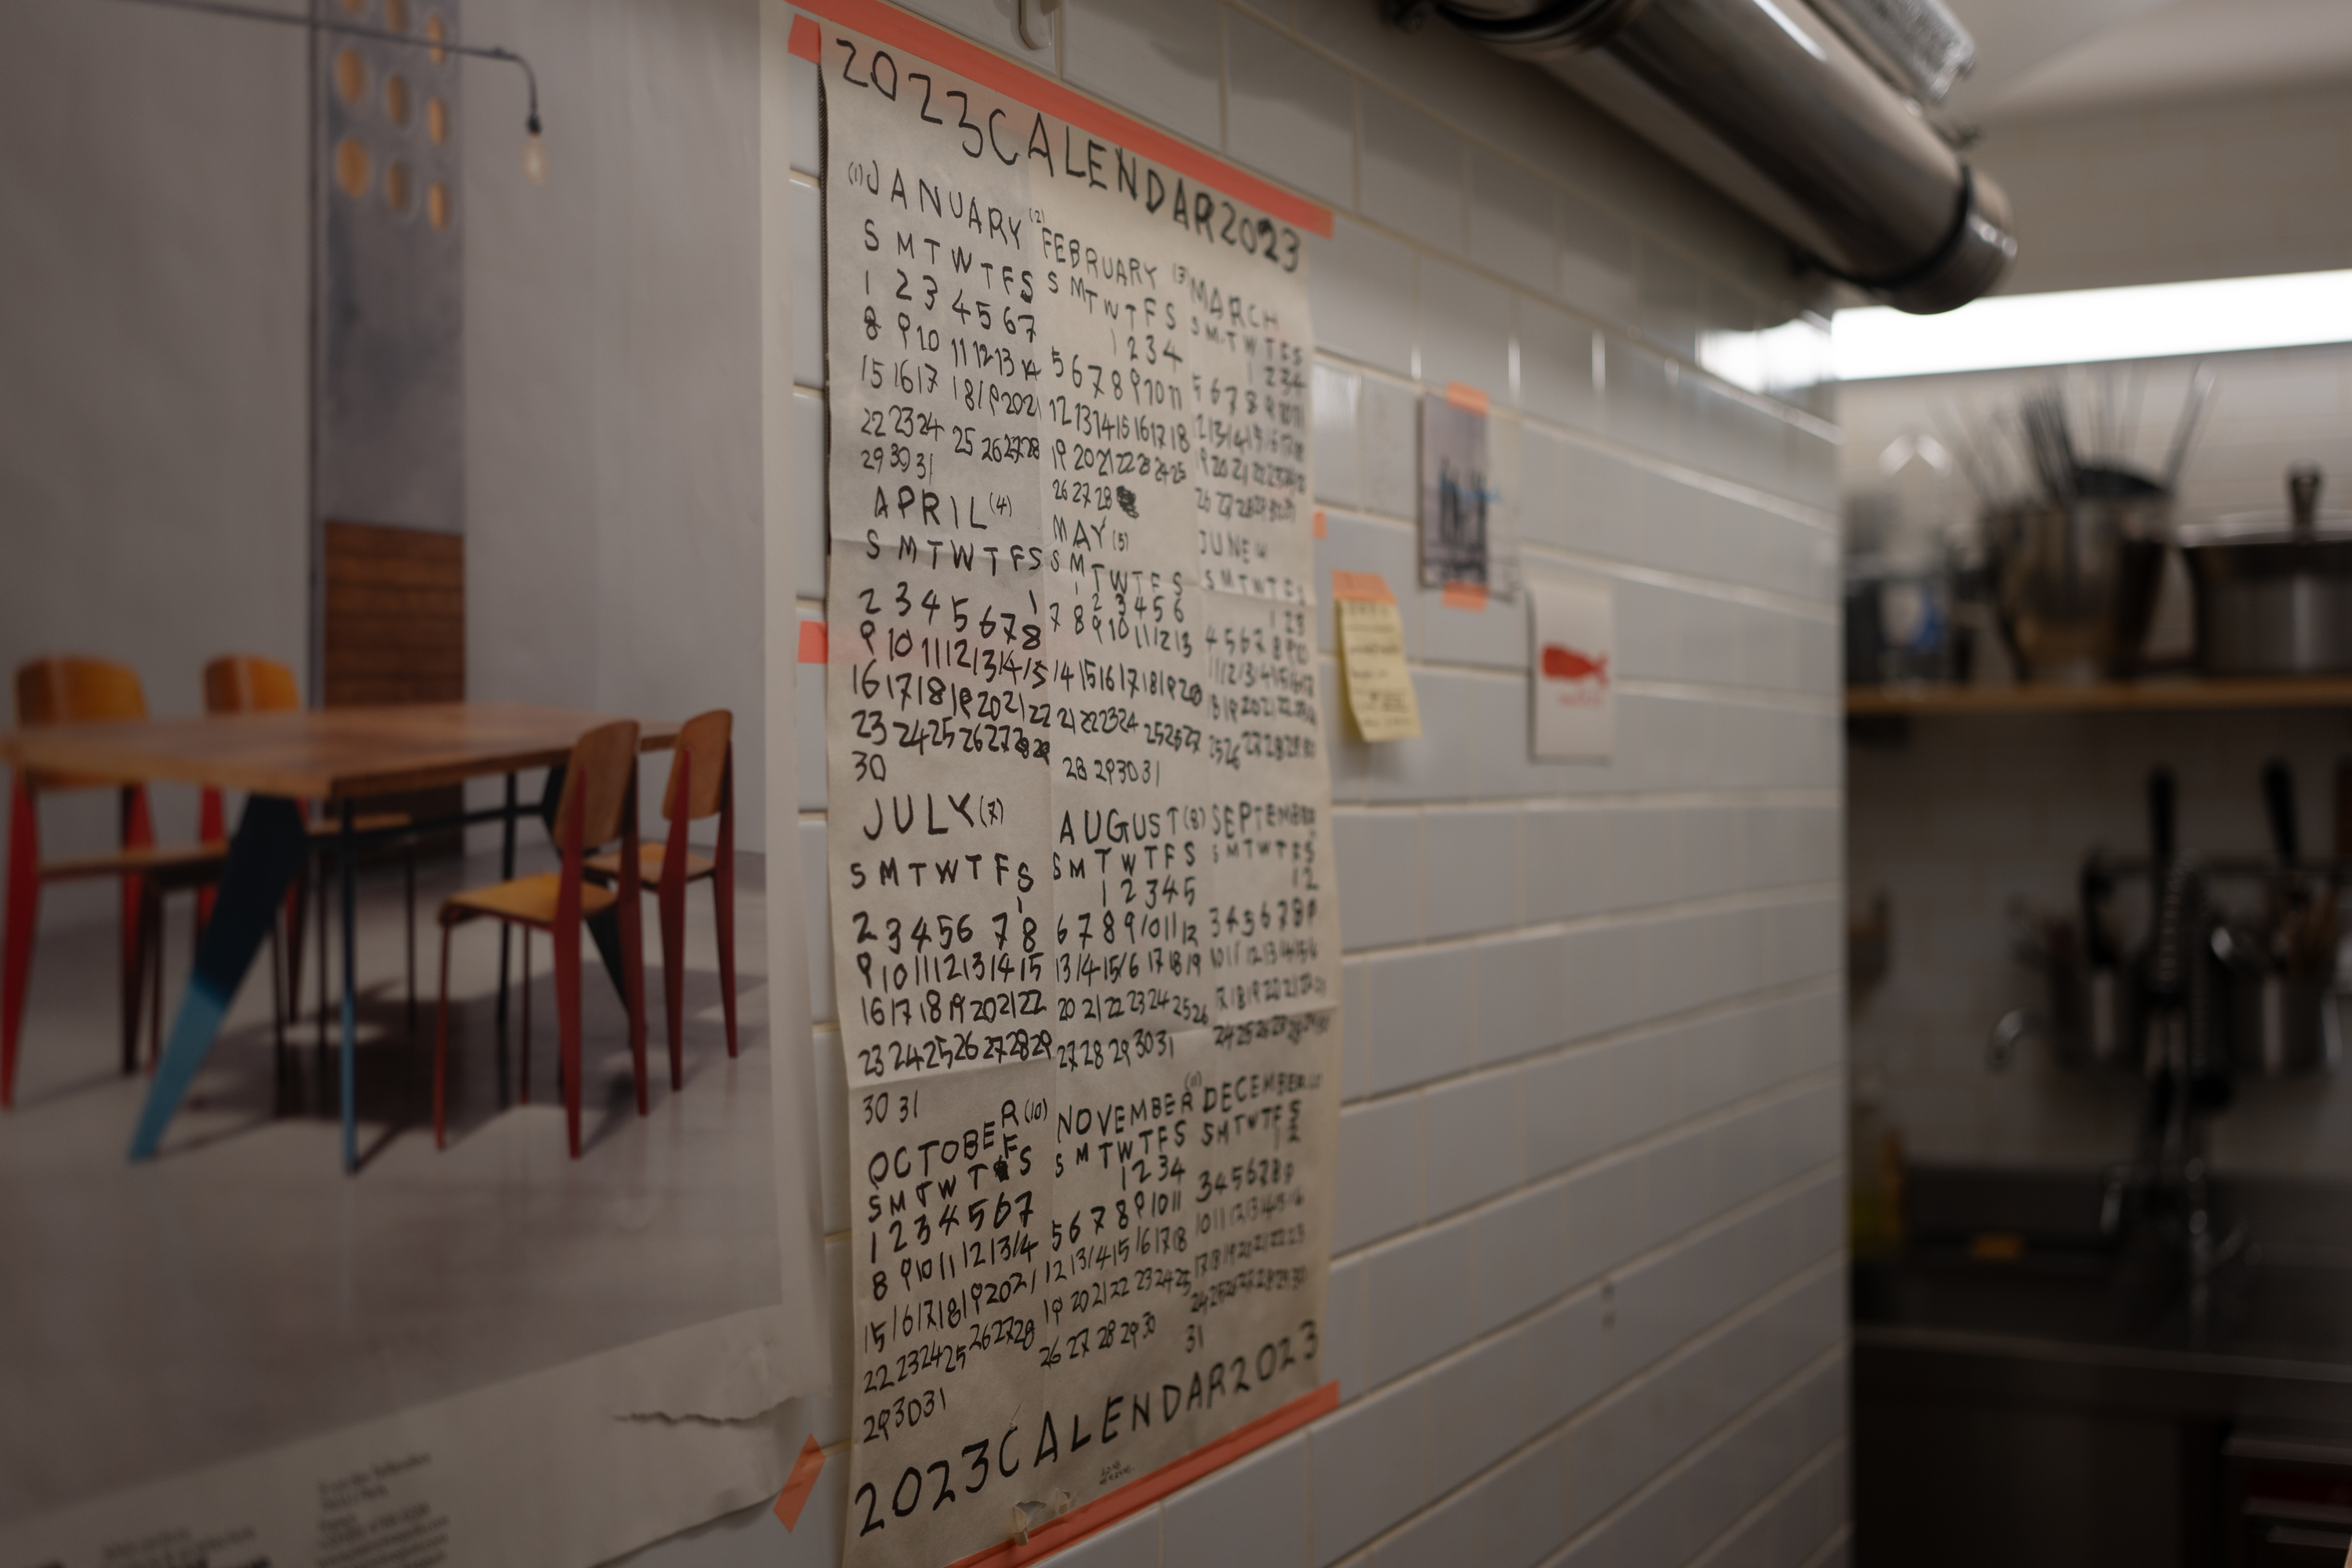 2023CALENDAR2023
(1)JANUARY
S M T W T F S
1 2 3 4 5 6 7
8 9 10 11 12 13 14
15 16 17 18 19 20 21
22 23 24 25 26 27 28
29 30 31
(2)FEBRUARY
S M T W T F S
1 2 3 4
5 6 7 8 9 10 11
12 13 14 15 16 17 18
19 20 21 22 23 24 25
26 27 28
(3)MARCH
S M T W T F S
1 2 3 4
5 6 7 8 9 10 11
12 13 14 15 16 17 18
19 20 21 22 23
26 27 28 29 30 31
APRIL(4)
S M T W T F S
1
2 3 4 5 6 7 8
9 10 11 12 13 14 15
16 17 18 19 20 21 22
23 24 25 26 27 28 29
30
MAY(5)
S M T W T F S
1 2 3 4 5 6
7 8 9 10 11 12 13
14 15 16 17 18 19 20
21 22 23 24 25 26 27
28 29 30 31
JUNE
S M T W T F S
1 2 3
4 5 6 7 8 9 10
11 12 13 14 15 16 17
18 19 20 21 22
25 26 27 28 29 30
JULY(7)
S M T W T F S
1
2 3 4 5 6 7 8
9 10 11 12 13 14 15
16 17 18 19 20 21 22
23 24 25 26 27 28 29
30 31
AUGUST(8)
S M T W T F S
1 2 3 4 5
6 7 8 9 10 11 12
13 14 15 16 17 18 19
20 21 22 23 24 25 26
27 28 29 30 31
SEPTEMBER
S M T W T F S
1 2
3 4 5 6 7 8 9
10 11 12 13 14 15 16
17 18 19 20 21 22 23
24 25 26 27 28 29 30
OCTOBER(10)
S M T W T F S
1 2 3 4 5 6 7
8 9 10 11 12 13 14
15 16 17 18 19 20 21
22 23 24 25 26 27 28
29 30 31
NOVEMBER(11)
S M T W T F S
1 2 3 4
5 6 7 8 9 10 11
12 13 14 15 16 17 18
19 20 21 22 23 24 25
26 27 28 29 30
DECEMBER
S M T W T F S
1 2
3 4 5 6 7 8 9
10 11 12 13 14 15 16
17 18 19 20 21 22 23
24 25 26 27 28 29 30
31
2023CALENDAR2023